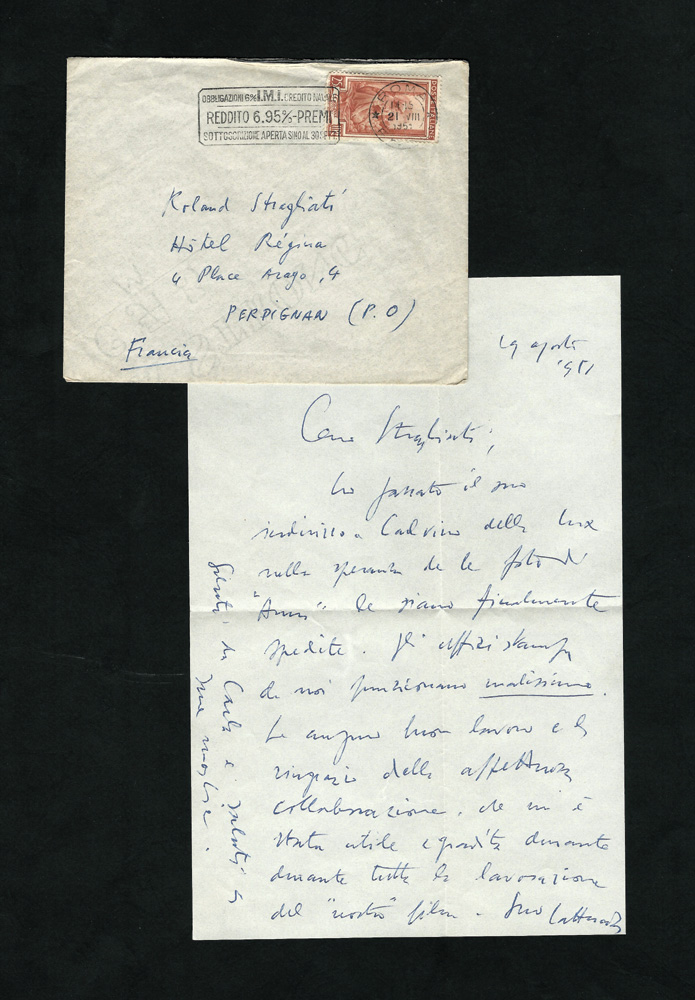 OBBLIGAZIONI 6% I.M.I. CREDITO NAVALE
REDDITO 6.95%-PREMI
SOTTOSCRIZIONE APERTA SINO AL 30 SETT
ROMA
21 VIII
1951
Roland Stragliati
Hôtel Régina
4 Place Arago, 4
PERPIGNAN (P.O)
Francia
19 agosto
1951
Caro Stragliati,
ho passato il suo
indirizzo a Cadorino della Lux
nella speranza che le foto di
"Anna" le siano finalmente
spedite. Gli uffizi stampa
da noi funzionano malissimo.
Le auguro buon lavoro e la
ringrazio della affettuosa
collaborazione, che mi è
stata utile e gradita durante
durante tutta la lavorazione
del "nostro" film. Suo Lattuada
Saluti da Carla e saluti a
sua moglie.